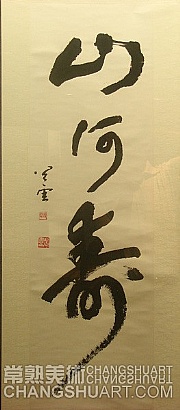 山河壽
笑雲
常熟美術 CHANGSHUART
CHANGSHUART.COM